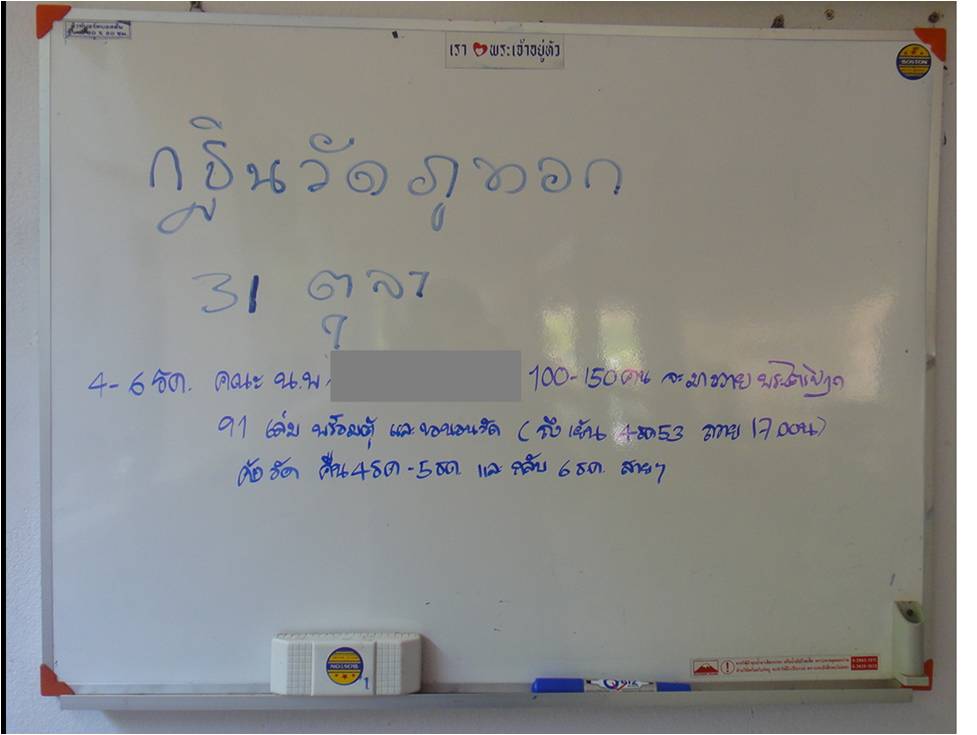 เรา พระเจ้าอยู่หัว
BOSTON
กฐินวัดภูทอก
31 ตุลา
4-6 ธค. คณะ น.พ. 100-150 คน จะมาถวาย พระไตรปิฎก
91 เล่ม พร้อมตู้ และขอนอนวัด ( ถึงเย็น 4 ธค 53 ถวาย 17.00 น)
คือ 4 ธค - 5 ธค. และ กลับ 6 ธค. สายๆ